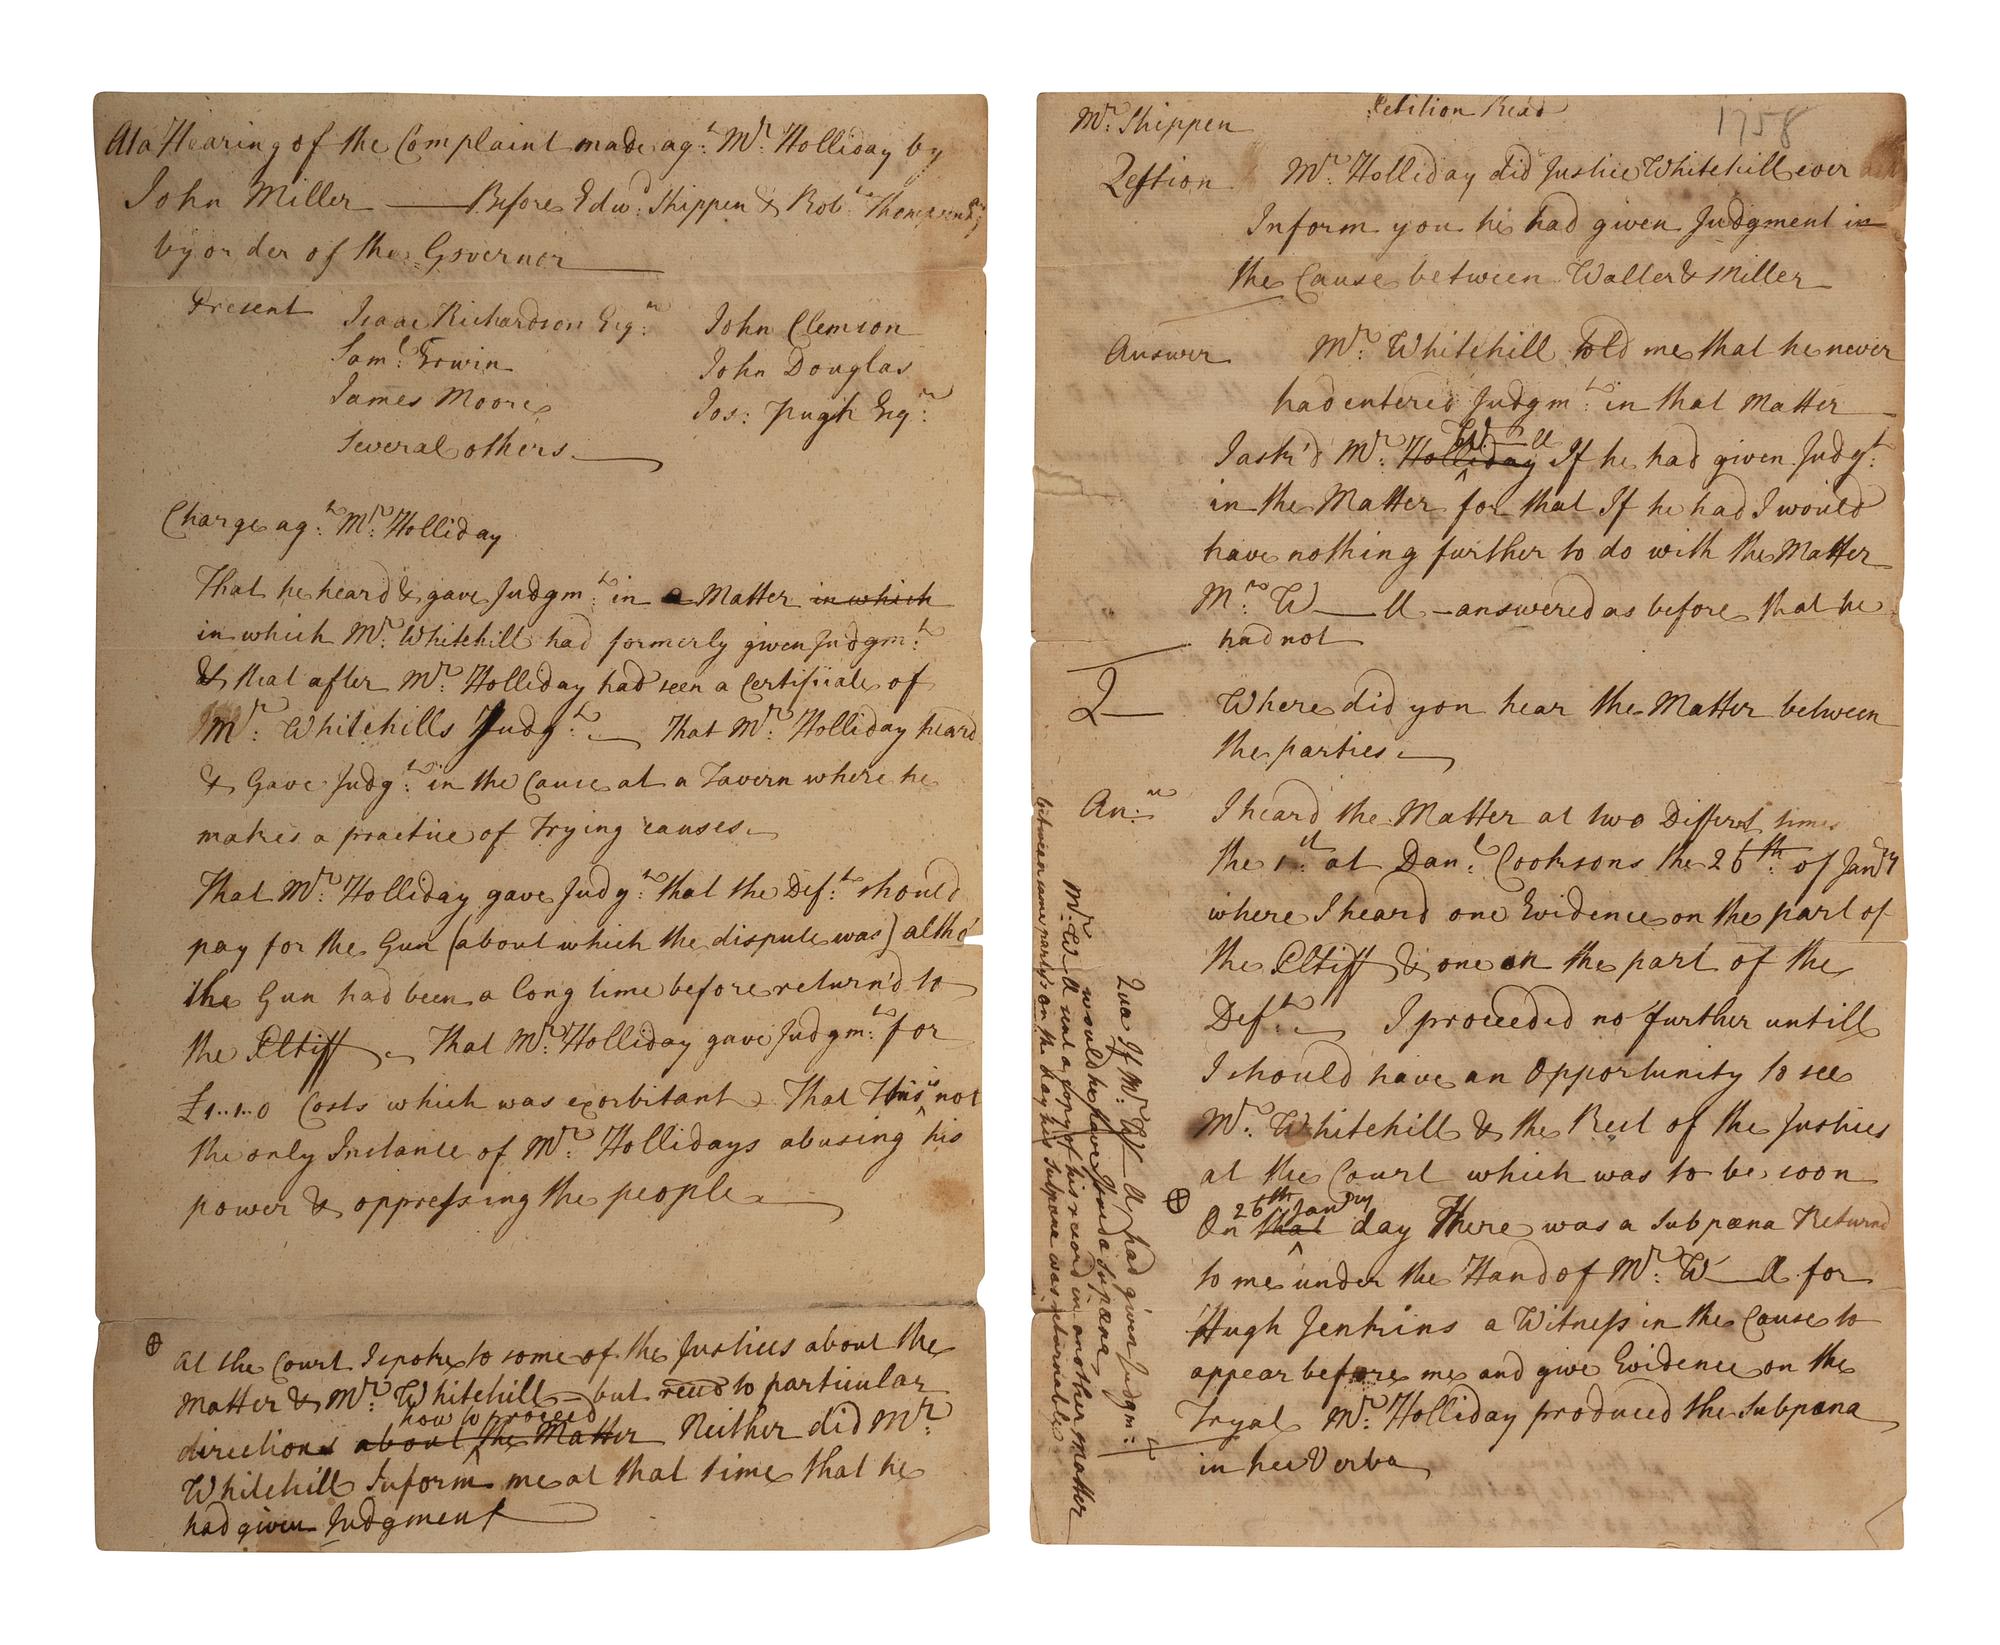 At a Hearing of the Complaint made ag:t Mr: Holliday by
John Miller — Before Edwd: Shippen & Robt: Thompson Esqrs
by order of the Governor
Present Isaac Richardson Esqr: John Clemson
Saml: Erwin John Douglas
James Moore Jos: Pugh Esqr:
Several others
Charge ag:t Mr: Holliday
That he heard & gave Judgm:t in a Matter in which
in which Mr: Whitehill had formerly given Judgm:t
& that after Mr: Holliday had seen a Certificate of
Mr: Whitehills Judg:t That Mr: Holliday heard
& Gave Judg:t in the Cause at a Tavern where he
makes a practice of trying causes
That Mr: Holliday gave Judg:t that the Def:t should
pay for the Gun (about which the dispute was) altho'
the Gun had been a long time before return'd to
the Pltiff. That Mr: Holliday gave Judgm:t for
£1..1..0 Costs which was exorbitant That This is not
the only Instance of Mr: Hollidays abusing his
power & oppressing the people
⊕ at the Court I spoke to some of the Justices about the
Matter & Mr: Whitehill — but to particular
how to proceed
directions about the Matter Neither did Mr:
Whitehill Inform me at that time that he
had given Judgment
Mr: Shippen Petition Read 1758
Question Mr: Holliday did Justice Whitehill ever
Inform you he had given Judgment in
the Cause between Waller & Miller
Answer Mr: Whitehill told me that he never
had entered Judgm:t in that Matter
W—ll
I ask'd Mr: Holliday If he had given Judg:t
in the Matter for that If he had I would
have nothing further to do with the Matter
Mr: W—ll — answered as before that he
had not
Q— Where did you hear the Matter between
the parties
An:r I heard the Matter at two Differt times
the 1st: at Danl: Cooksons the 26th: of Janry
where I heard one Evidence on the part of
the Pltiff & one on the part of the
Def:t I proceeded no further untill
I should have an Opportunity to see
Mr: Whitehill & the Rest of the Justices
at the Court which was to be soon
26th Janry
⊕ On that day There was a Subpœna Returnd
to me under the Hand of Mr: W—ll for
Hugh Jenkins a Witness in the Cause to
appear before me and give Evidence on the
Tryal Mr: Holliday produced the Subpœna
in hec Verba
Qua If Mr: W—ll had given Judgm:t
would he have Issued a Subpœna
Mr: W—ll sent a Copy of his record in another Matter
between same partys on the day his Subpœna was returnable